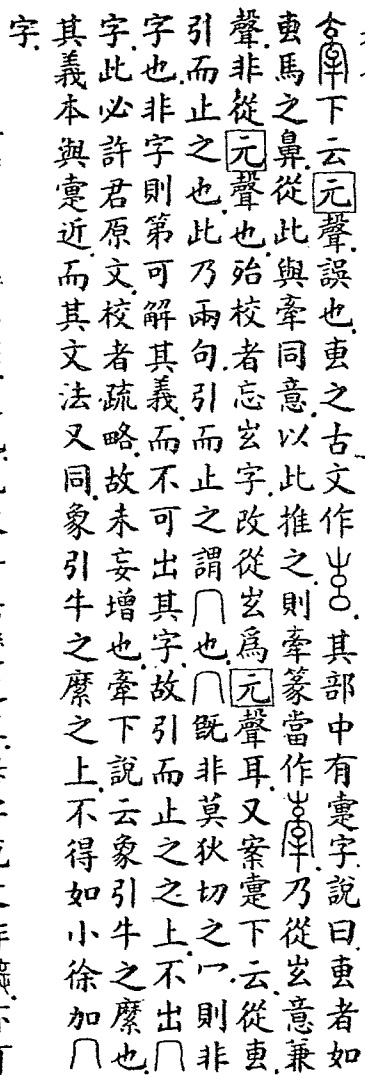 下云元聲誤也叀之古文作其部中有疐字說曰叀者如
叀馬之鼻從此與牽同意以此推之則牽篆當作乃從意兼
聲非從元聲也殆校者忘字改從爲元聲耳又案疐下云從叀
引而止之也此乃兩句引而止之謂冂也冂旣非莫狄切之冖則非
字也非字則第可解其義而不可出其字故引而止之之上不出冂
字此必許君原文校者疏略故未妄增也牽下說云象引牛之縻也
其義本與疐近而其文法又同象引牛之縻之上不得如小徐加冂
字